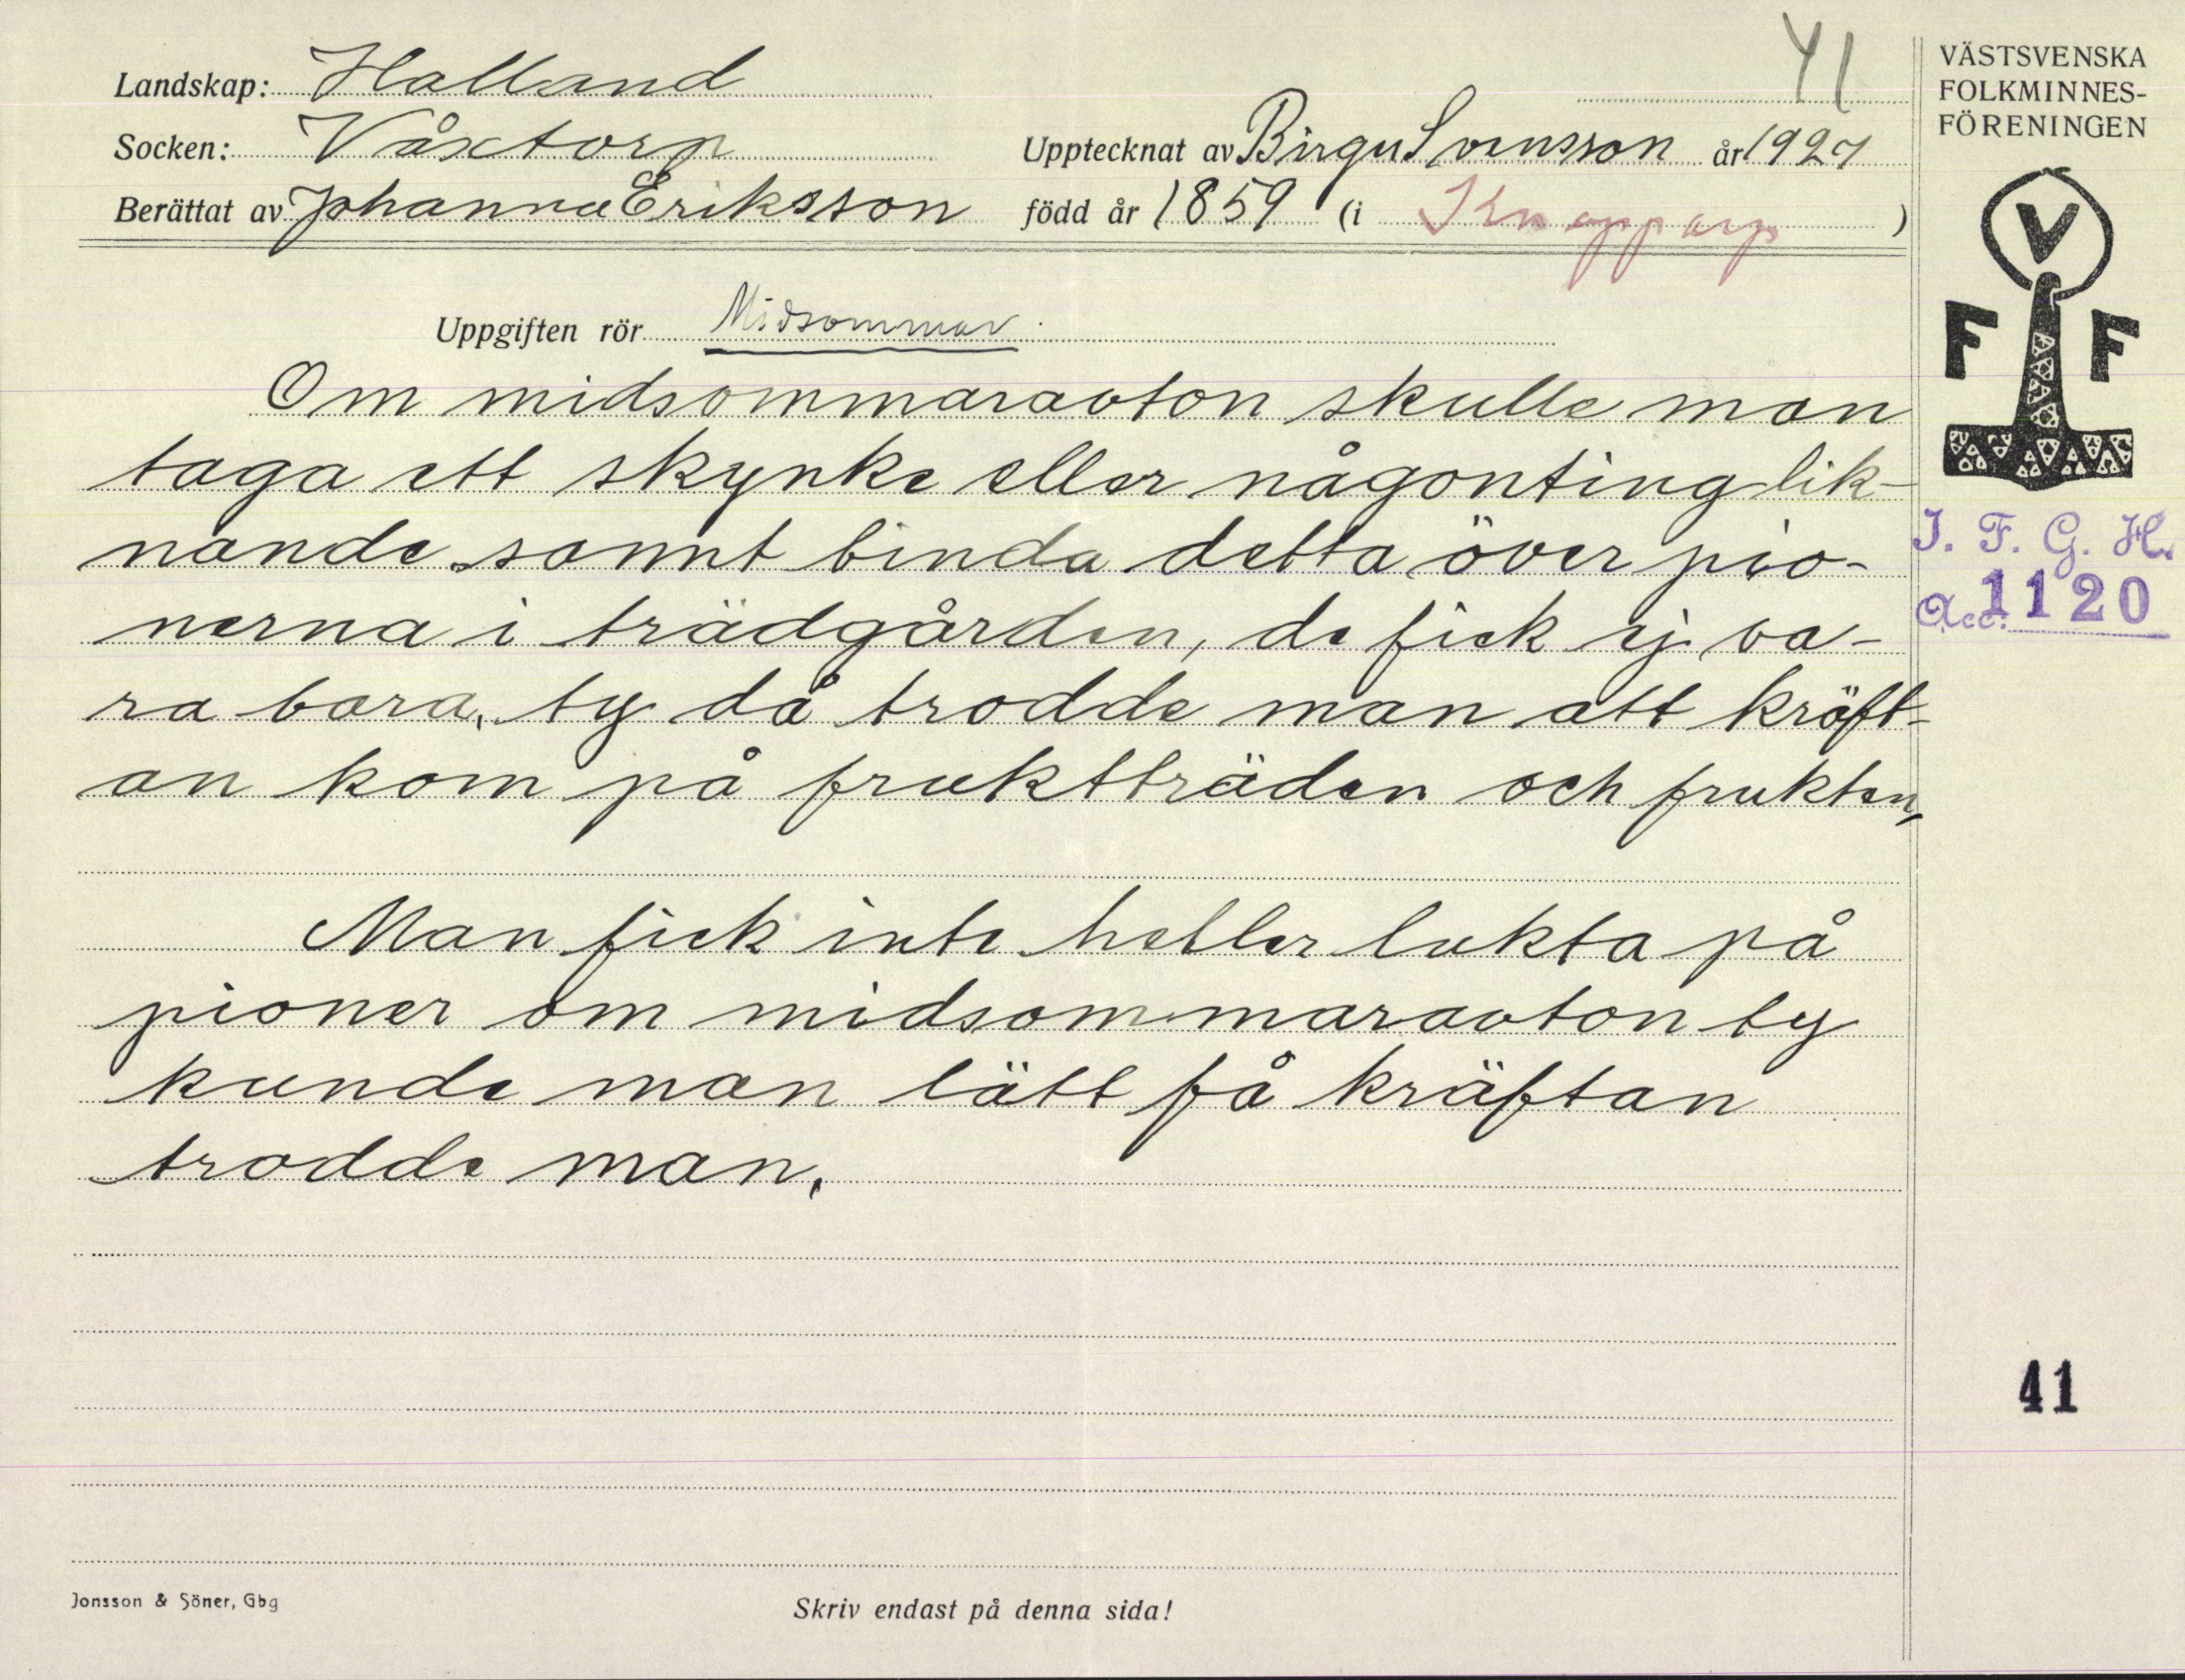 41
Landskap: Halland
Socken: Våxtorp
Upptecknat av Birger Svensson år 1927
Berättat av Johanna Eriksson född år 1859 (i Knapparp)
Uppgiften rör Midsommar.
Om midsommaravton skulle man
taga ett skynke eller någonting lik-
nande samt binda detta över pio-
nerna i trädgården, de fick ej va-
ra bara, ty då trodde man att kräft-
an kom på fruktträden och frukten,
Man fick inte heller lukta på
pioner om midsommaravton ty
kunde man lätt få kräftan
trodde man.
Jonsson & Söner, Gbg
Skriv endast på denna sida!
VÄSTSVENSKA
FOLKMINNES-
FÖRENINGEN
V
F F
I. F. G. H.
Acc. 1120
41